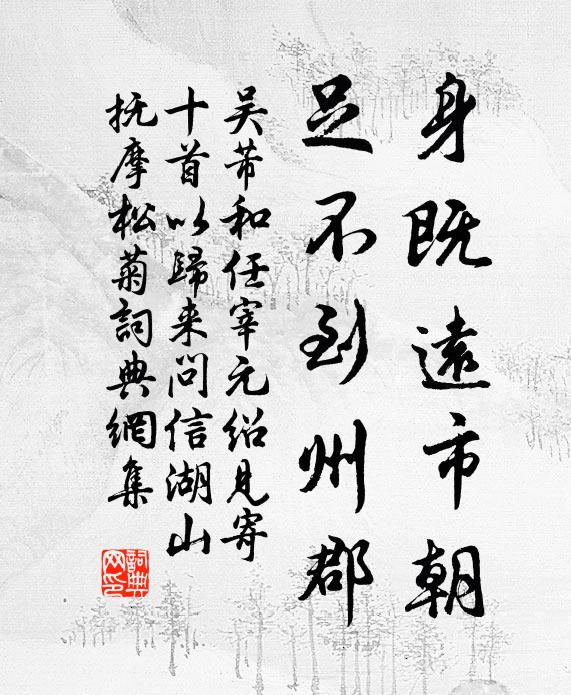 身既遠市朝
足不到州郡
吴芾和任宰元绍见寄
十首以歸来问信湖山
抚摩松菊詞典網集
詞典网印